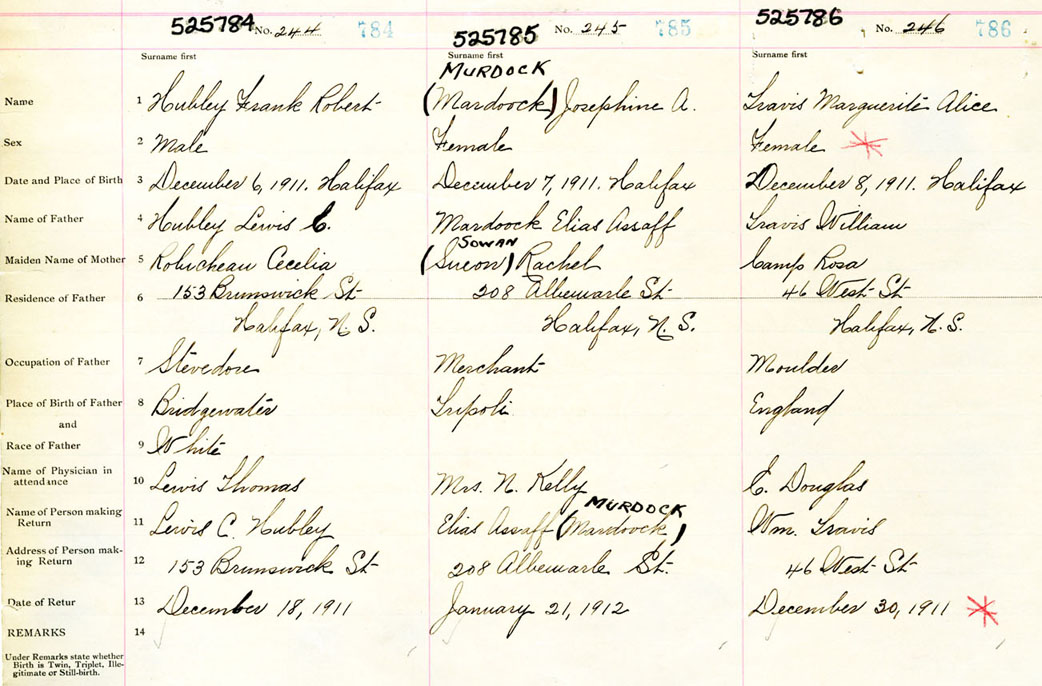 525784 No. 244 784 525785 No. 245 785 525786 No. 246 786
Surname first Surname first Surname first
MURDOCK
Name 1 Hubley Frank Robert (Mardoock) Josephine A. Travis Marguerite Alice
Sex 2 Male Female Female
Date and Place of Birth 3 December 6, 1911. Halifax December 7, 1911. Halifax December 8, 1911. Halifax
Name of Father 4 Hubley Lewis C. Mardoock Elias Assaff Travis William
SOWAN
Maiden Name of Mother 5 Robicheau Cecelia (Sueon) Rachel Camp Rosa
Residence of Father 6 153 Brunswick St 208 Albemarle St 46 West St
Halifax, N.S. Halifax, N.S. Halifax, N.S.
Occupation of Father 7 Stevedore Merchant Moulder
Place of Birth of Father 8 Bridgewater Tripoli England
and
Race of Father 9 White
Name of Physician in
attendance 10 Lewis Thomas Mrs. N. Kelly C. Douglas
MURDOCK
Name of Person making
Return 11 Lewis C. Hubley Elias Assaff (Mardoock) Wm. Travis
Address of Person mak-
ing Return 12 153 Brunswick St 208 Albemarle St. 46 West St
Date of Retur 13 December 18, 1911 January 21, 1912 December 30, 1911
REMARKS 14
Under Remarks state whether
Birth is Twin, Triplet, Ille-
gitimate or Still-birth.